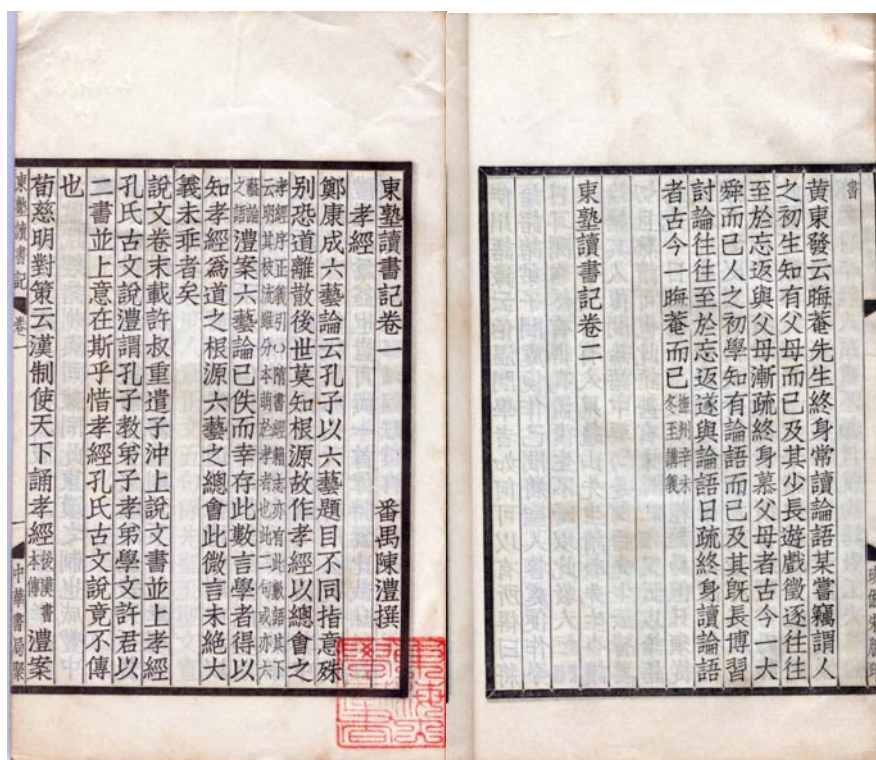 珍倣宋版印
書
黃東發云晦菴先生終身常讀論語某嘗竊謂人
之初生知有父母而已及其少長遊戲徵逐往往
至於忘返與父母漸疏終身慕父母者古今一大
舜而已人之初學知有論語而已及其旣長博習
討論往往至於忘返遂與論語日疏終身讀論語
者古今一晦菴而已撫州辛未冬至講義
東塾讀書記卷二
東塾讀書記卷一
孝經 番禺陳澧撰
鄭康成六藝論云孔子以六藝題目不同指意殊
別恐道離散後世莫知根源故作孝經以總會之
孝經序正義引○隋書經籍志亦有此數語其下
云明其枝流雖分本萌於孝者也此二句或亦六
藝論之語澧案六藝論已佚而幸存此數言學者得以
知孝經爲道之根源六藝之總會此微言未絕大
義未乖者矣
說文卷末載許叔重遣子沖上說文書並上孝經
孔氏古文說澧謂孔子教弟子孝弟學文許君以
二書並上意在斯乎惜孝經孔氏古文說竟不傳
也
荀慈明對策云漢制使天下誦孝經後漢書本傳澧案
東塾讀書記 卷一 一 中華書局聚